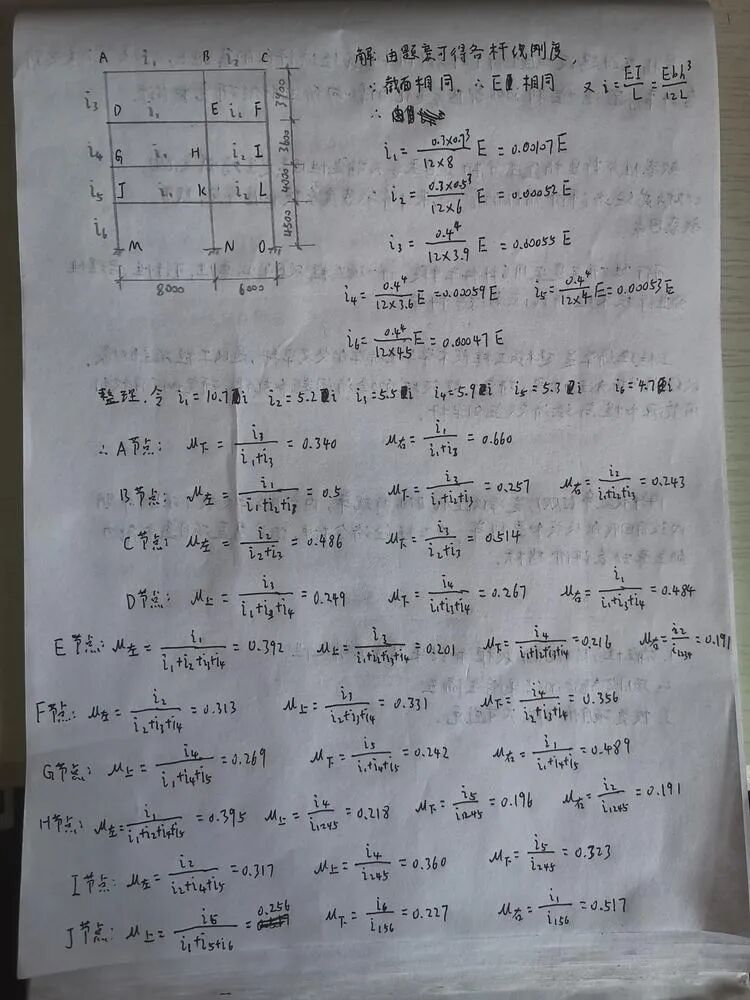 A i₁ B i₂ C
i₃ D i₁ E i₂ F 3900
i₄ G i₁ H i₂ I 3600
i₅ J i₁ K i₂ L 4000
i₆ M N O 4500
8000 6000
解:由题意可得各杆线刚度,
∵截面相同,∴E 相同 又 i=EI/L=Ebh³/12L
∴
i₁=0.3×0.7³/12×8 E=0.00107E
i₂=0.3×0.5³/12×6 E=0.00052E
i₃=0.4⁴/12×3.9 E=0.00055E
i₄=0.4⁴/12×3.6 E=0.00059E i₅=0.4⁴/12×4 E=0.00053E
i₆=0.4⁴/12×4.5 E=0.00047E
整理,令 i₁=10.7i i₂=5.2i i₃=5.5i i₄=5.9i i₅=5.3i i₆=4.7i
∴A节点: μ下=i₃/i₁+i₃=0.340 μ右=i₁/i₁+i₃=0.660
B节点: μ左=i₁/i₁+i₂+i₃=0.5 μ下=i₃/i₁+i₂+i₃=0.257 μ右=i₂/i₁+i₂+i₃=0.243
C节点: μ左=i₂/i₂+i₃=0.486 μ下=i₃/i₂+i₃=0.514
D节点: μ上=i₃/i₁+i₃+i₄=0.249 μ下=i₄/i₁+i₃+i₄=0.267 μ右=i₁/i₁+i₃+i₄=0.484
E节点: μ左=i₁/i₁+i₂+i₃+i₄=0.392 μ上=i₃/i₁+i₂+i₃+i₄=0.201 μ下=i₄/i₁+i₂+i₃+i₄=0.216 μ右=i₂/i₁₂₃₄=0.191
F节点: μ左=i₂/i₂+i₃+i₄=0.313 μ上=i₃/i₂+i₃+i₄=0.331 μ下=i₄/i₂+i₃+i₄=0.356
G节点: μ上=i₄/i₁+i₄+i₅=0.269 μ下=i₅/i₁+i₄+i₅=0.242 μ右=i₁/i₁+i₄+i₅=0.489
H节点: μ左=i₁/i₁+i₂+i₄+i₅=0.395 μ上=i₄/i₁₂₄₅=0.218 μ下=i₅/i₁₂₄₅=0.196 μ右=i₂/i₁₂₄₅=0.191
I节点: μ左=i₂/i₂+i₄+i₅=0.317 μ上=i₄/i₂₄₅=0.360 μ下=i₅/i₂₄₅=0.323
J节点: μ上=i₅/i₁+i₅+i₆=0.256 μ下=i₆/i₁₅₆=0.227 μ右=i₁/i₁₅₆=0.517